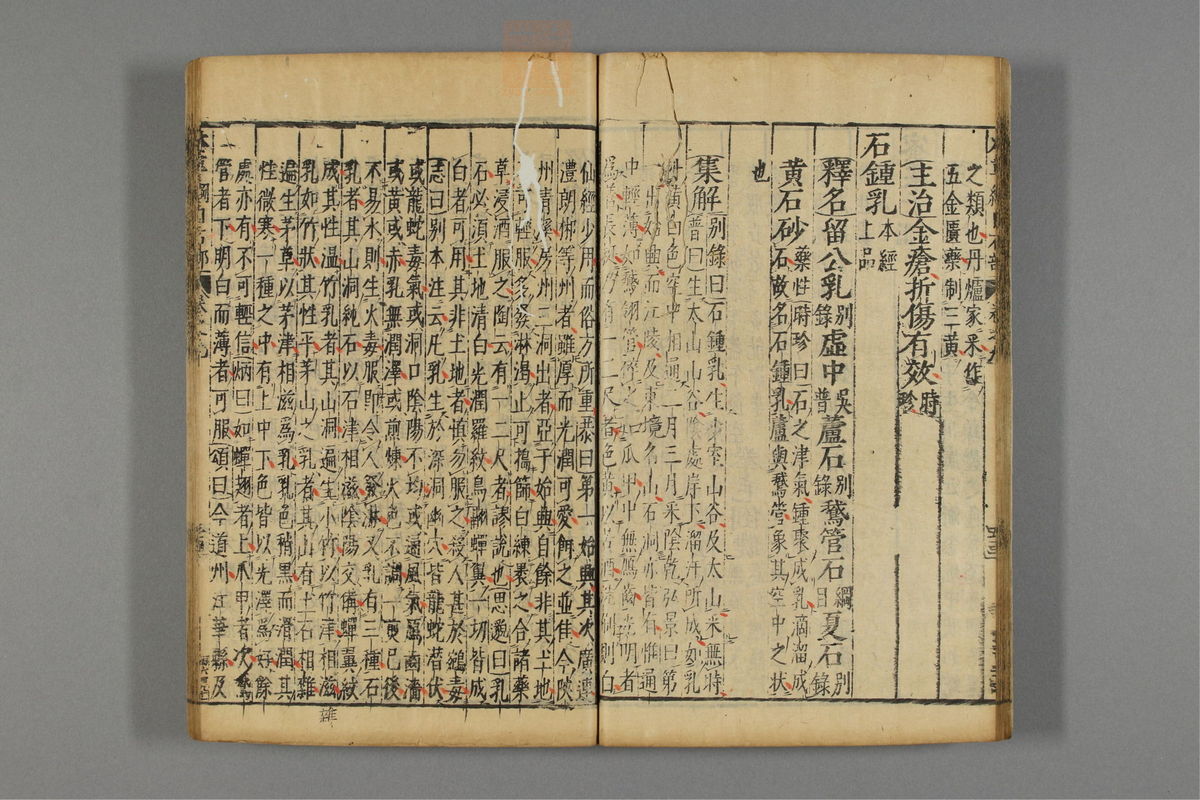 之類也丹爐家采作
五金匱藥制三黃
主治金瘡折傷有效時珍
石鍾乳本經上品
釋名留公乳別錄虛中吳普蘆石別錄鵞管石綱目夏石別錄
黃石砂藥性時珍曰石之津氣鍾聚成乳滴溜成
石故名石鍾乳蘆與鵞管象其空中之狀
也
集解別錄曰石鍾乳生少室山谷及太山采無時
普曰生太山山谷陰處岸下溜汁所成如乳
汁黃白色空中相通二月三月采陰乾弘景曰第
一出始興而江陵及東境名山石洞亦皆有惟通
中輕薄如鵞翎管碎之如爪甲中無鴈齒光明者
爲善長挺乃有一二尺者色黃以苦酒洗刷則白
仙經少用而俗方所重恭曰第一始興其次廣連
澧朗郴等州者雖厚而光潤可愛餌之並佳今陝
州清溪房州三洞出者亞于始興自餘非其土地
不可輕服多發淋渴止可擣篩白練褁之合諸藥
草浸酒服之陶云有一二尺者謬說也思邈曰乳
石必須土地清白光潤羅紋鳥翮蟬翼一切皆成
白者可用其非土地者愼勿服之殺人甚於鴆毒
志曰別本注云凡乳生於深洞幽穴皆龍蛇潜伏
或龍蛇毒氣或洞口陰陽不均或通風氣鴈齒澀
或黃或赤乳無潤澤或煎煉火色不調一煎已後
不易水則生火毒服卽令人發淋又乳有三種石
乳者其山洞純石以石津相滋陰陽交備蟬翼紋
成其性溫竹乳者其山洞遍生小竹以竹津相滋
乳如竹狀其性平茅山之乳者其山有土石相雜
遍生茅草以茅津相滋爲乳乳色稍黑而滑潤其
性微寒一種之中有上中下色皆以光澤爲好餘
處亦有不可輕信炳曰如蟬翅者上爪甲者次鵞
管者下明白而薄者可服頌曰今道州江華縣及
雜